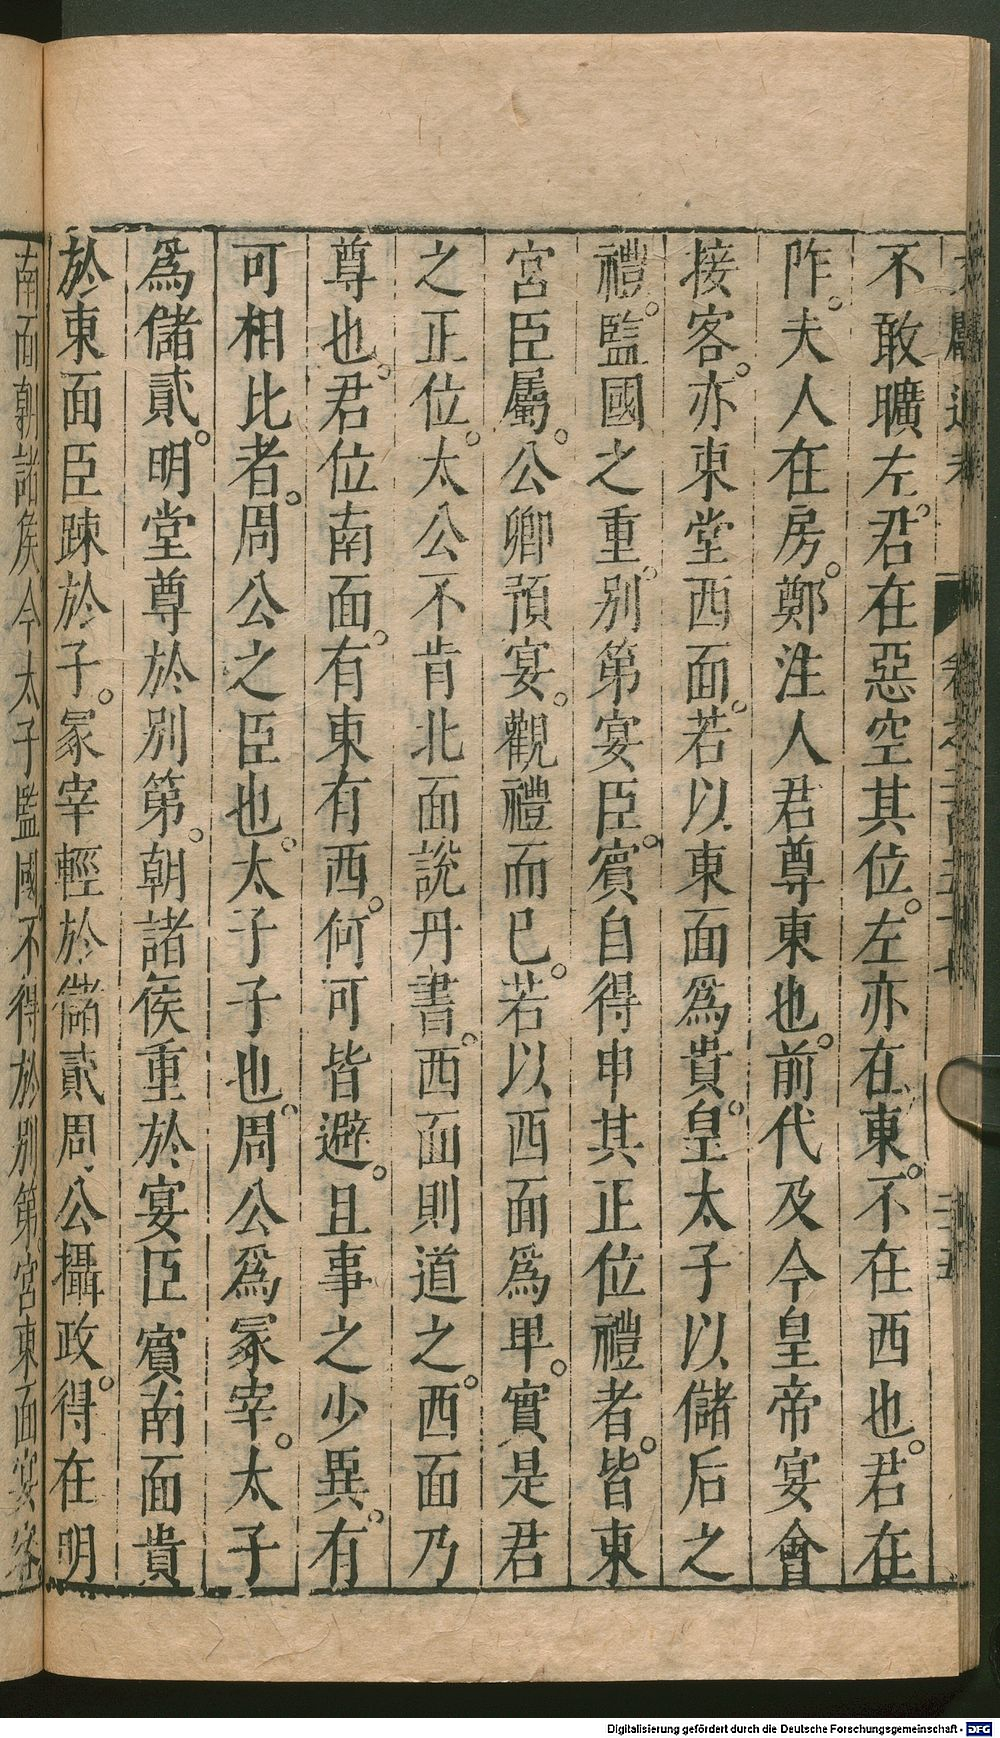 不敢曠左。君在惡空其位。左亦在東。不在西也。君在
阼。夫人在房。鄭注人君尊東也。前代及今皇帝宴會
接客。亦東堂西面。若以東面爲貴。皇太子以儲后之
禮。監國之重。别第宴臣。賓自得申其正位禮者。皆東
宮臣屬。公卿預宴。觀禮而已。若以西面爲卑。實是君
之正位。太公不肯北面說丹書。西面則道之。西面乃
尊也。君位南面。有東有西。何可皆避。且事之少異。有
可相比者。周公之臣也。太子子也。周公爲冢宰。太子
爲儲貳。明堂尊於別第。朝諸侯重於宴臣賓南面貴
於東面臣踈於子。冢宰輕於儲貳周公攝政。得在明
南面朝諸侯今太子監國不得於别第宮東面宴客
Digitalisierung gefördert durch die Deutsche Forschungsgemeinschaft - DFG